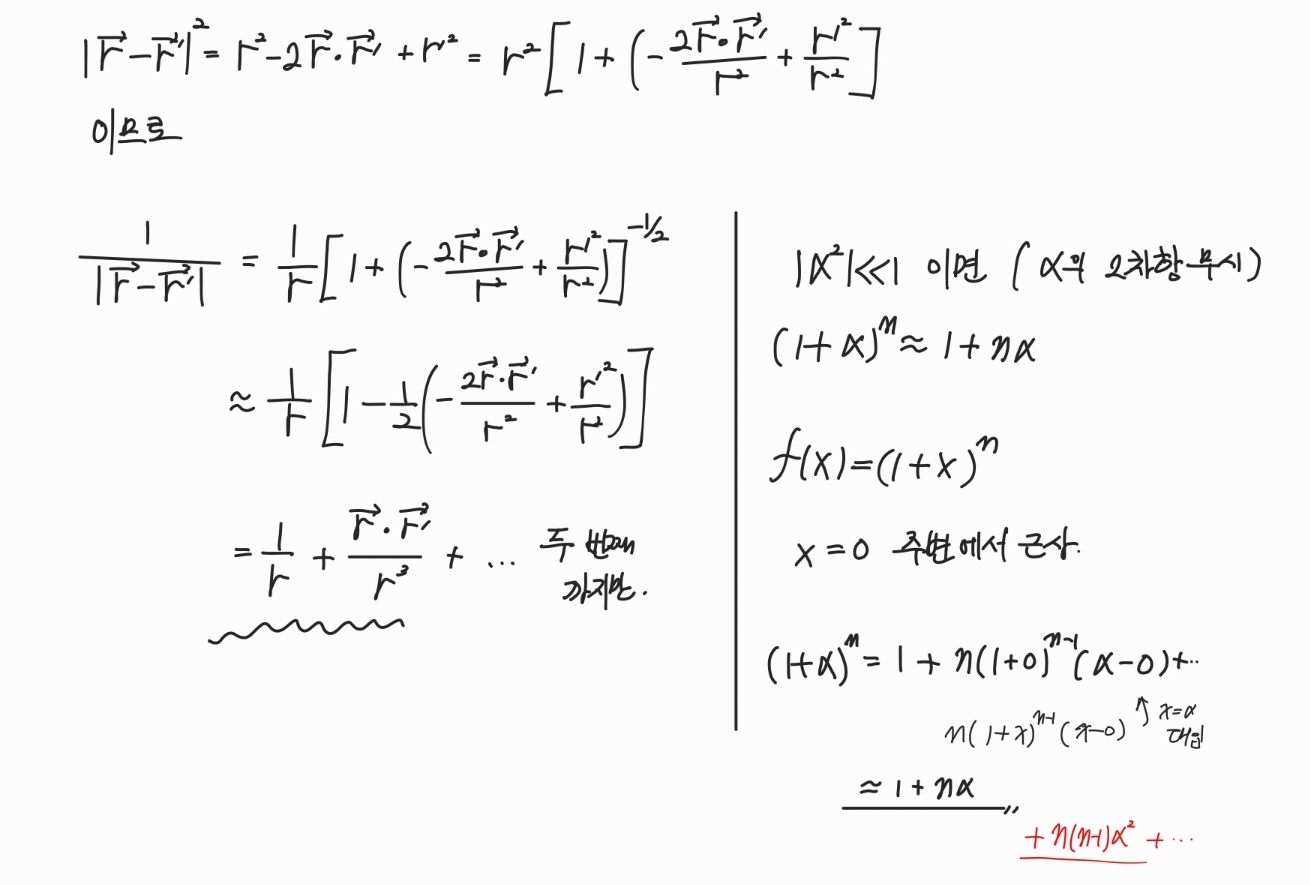 |r⃗ − r⃗'|² = r² − 2r⃗·r⃗' + r'² = r² [1 + (−2r⃗·r⃗'/r² + r'²/r²]
이므로
1/|r⃗ − r⃗'| = 1/r [1 + (−2r⃗·r⃗'/r² + r'²/r²)]^(−1/2)
≈ 1/r [1 − 1/2(−2r⃗·r⃗'/r² + r'²/r²)]
= 1/r + r⃗·r⃗'/r³ + … 두 번째
까지만.
|α²|≪1 이면 (α의 2차항 무시)
(1+α)ⁿ ≈ 1+nα
f(x)=(1+x)ⁿ
x=0 주변에서 근사.
(1+α)ⁿ = 1 + n(1+0)ⁿ⁻¹(α−0)+…
n(1+x)ⁿ⁻¹(x−0) ↑ x=α
대입
≈ 1+nα 〃
+ n(n-1)α² + …